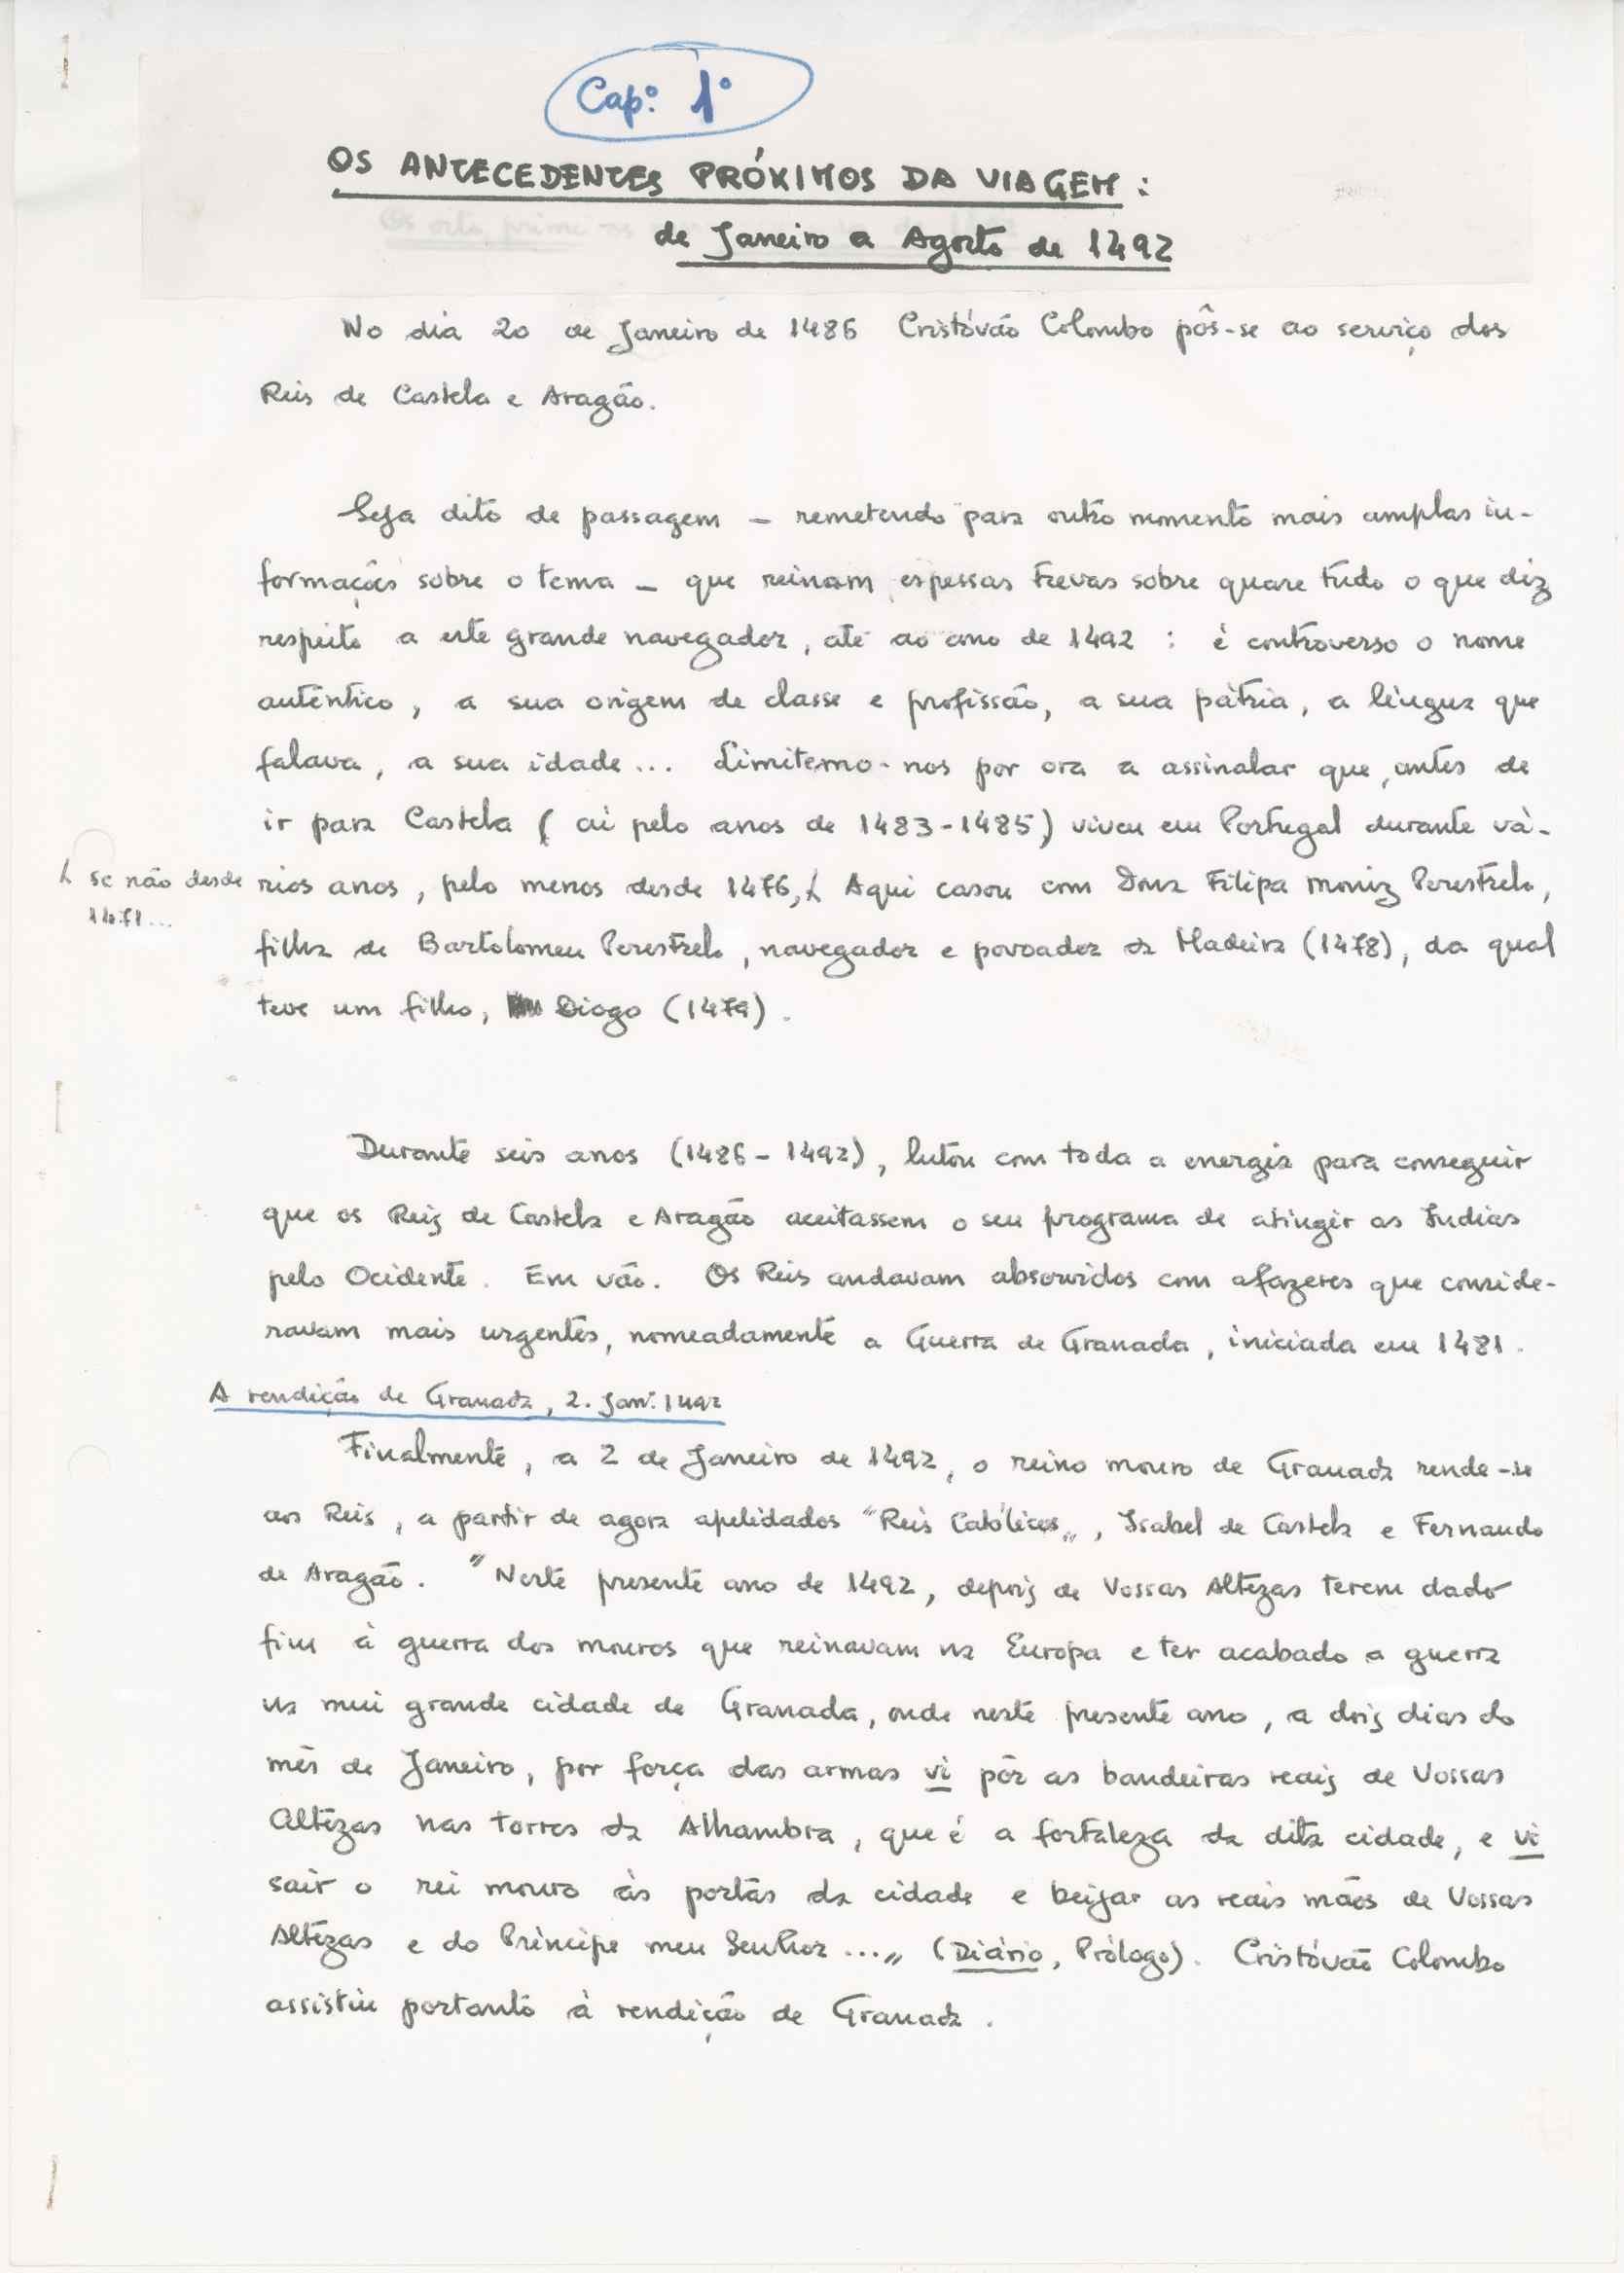 Cap.º 1º
OS ANTECEDENTES PRÓXIMOS DA VIAGEM:
de Janeiro a Agosto de 1492
No dia 20 de Janeiro de 1486 Cristóvão Colombo pôs-se ao serviço dos
Reis de Castela e Aragão.
Seja dito de passagem — remetendo para outro momento mais amplas in-
formações sobre o tema — que reinam espessas trevas sobre quase tudo o que diz
respeito a este grande navegador, até ao ano de 1492 : é controverso o nome
autêntico, a sua origem de classe e profissão, a sua pátria, a língua que
falava, a sua idade... Limitemo-nos por ora a assinalar que, antes de
ir para Castela (aí pelo anos de 1483-1485) viveu em Portugal durante vá-
rios anos, pelo menos desde 1476, Aqui casou com Dona Filipa Moniz Perestrelo,
se não desde
1471...
filha de Bartolomeu Perestrelo, navegador e povoador da Madeira (1478), da qual
teve um filho, Diogo (1479).
Durante seis anos (1486-1492), lutou com toda a energia para conseguir
que os Reis de Castela e Aragão aceitassem o seu programa de atingir as Índias
pelo Ocidente. Em vão. Os Reis andavam absorvidos com afazeres que conside-
ravam mais urgentes, nomeadamente a Guerra de Granada, iniciada em 1481.
A rendição de Granada, 2. Jan.º 1492
Finalmente, a 2 de Janeiro de 1492, o reino mouro de Granada rende-se
aos Reis, a partir de agora apelidados "Reis Católicos", Isabel de Castela e Fernando
de Aragão. "Neste presente ano de 1492, depois de Vossas Altezas terem dado
fim à guerra dos mouros que reinavam na Europa e ter acabado a guerra
na mui grande cidade de Granada, onde neste presente ano, a dois dias do
mês de Janeiro, por força das armas vi pôr as bandeiras reais de Vossas
Altezas nas torres da Alhambra, que é a fortaleza da dita cidade, e vi
sair o rei mouro às portas da cidade e beijar as reais mãos de Vossas
Altezas e do Príncipe meu Senhor..." (Diário, Prólogo). Cristóvão Colombo
assistiu portanto à rendição de Granada.